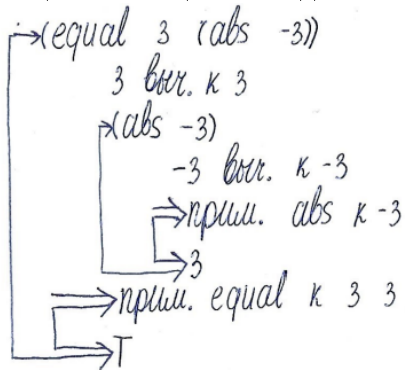 (equal 3 (abs -3))
3 выч. к 3
(abs -3)
-3 выч. к -3
прим. abs к -3
3
прим. equal к 3 3
T